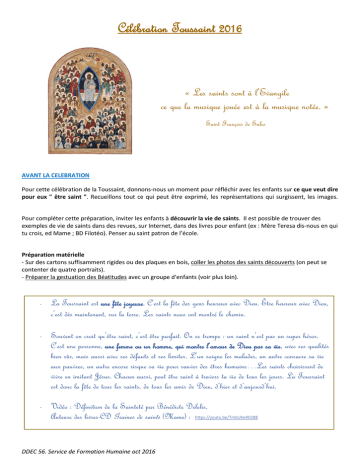 Célébration Toussaint 2016
« Les saints sont à l'Evangile
ce que la musique jouée est à la musique notée. »
Saint François de Sales
AVANT LA CELEBRATION
Pour cette célébration de la Toussaint, donnons-nous un moment pour réfléchir avec les enfants sur ce que veut dire
pour eux " être saint ". Recueillons tout ce qui peut être exprimé, les représentations qui surgissent, les images.
Pour compléter cette préparation, inviter les enfants à découvrir la vie de saints. Il est possible de trouver des
exemples de vie de saints dans des revues, sur Internet, dans des livres pour enfant (ex : Mère Teresa dis-nous en qui
tu crois, ed Mame ; BD Filotéo). Penser au saint patron de l'école.
Préparation matérielle
- Sur des cartons suffisamment rigides ou des plaques en bois, coller les photos des saints découverts (on peut se
contenter de quatre portraits).
- Préparer la gestuation des Béatitudes avec un groupe d'enfants (voir plus loin).
- La Toussaint est une fête joyeuse. C'est la fête des gens heureux avec Dieu. Etre heureux avec Dieu,
c'est dès maintenant, sur la terre. Les saints nous ont montré le chemin.
- Souvent on croit qu'être saint, c'est être parfait. On se trompe : un saint n'est pas un super héros.
C'est une personne, une femme ou un homme, qui montre l'amour de Dieu par sa vie, avec ses qualités
bien sûr, mais aussi avec ses défauts et ses limites. L'un soigne les malades, un autre consacre sa vie
aux pauvres, un autre encore risque sa vie pour sauver des êtres humains… Les saints choisissent de
vivre en imitant Jésus. Chacun aussi, peut être saint à travers la vie de tous les jours. La Toussaint
est donc la fête de tous les saints, de tous les amis de Dieu, d'hier et d'aujourd'hui.
- Vidéo : Définition de la Sainteté par Bénédicte Delelis,
Auteure des livres-CD Graines de saints (Mame) :
DDEC 56. Service de Formation Humaine oct 2016